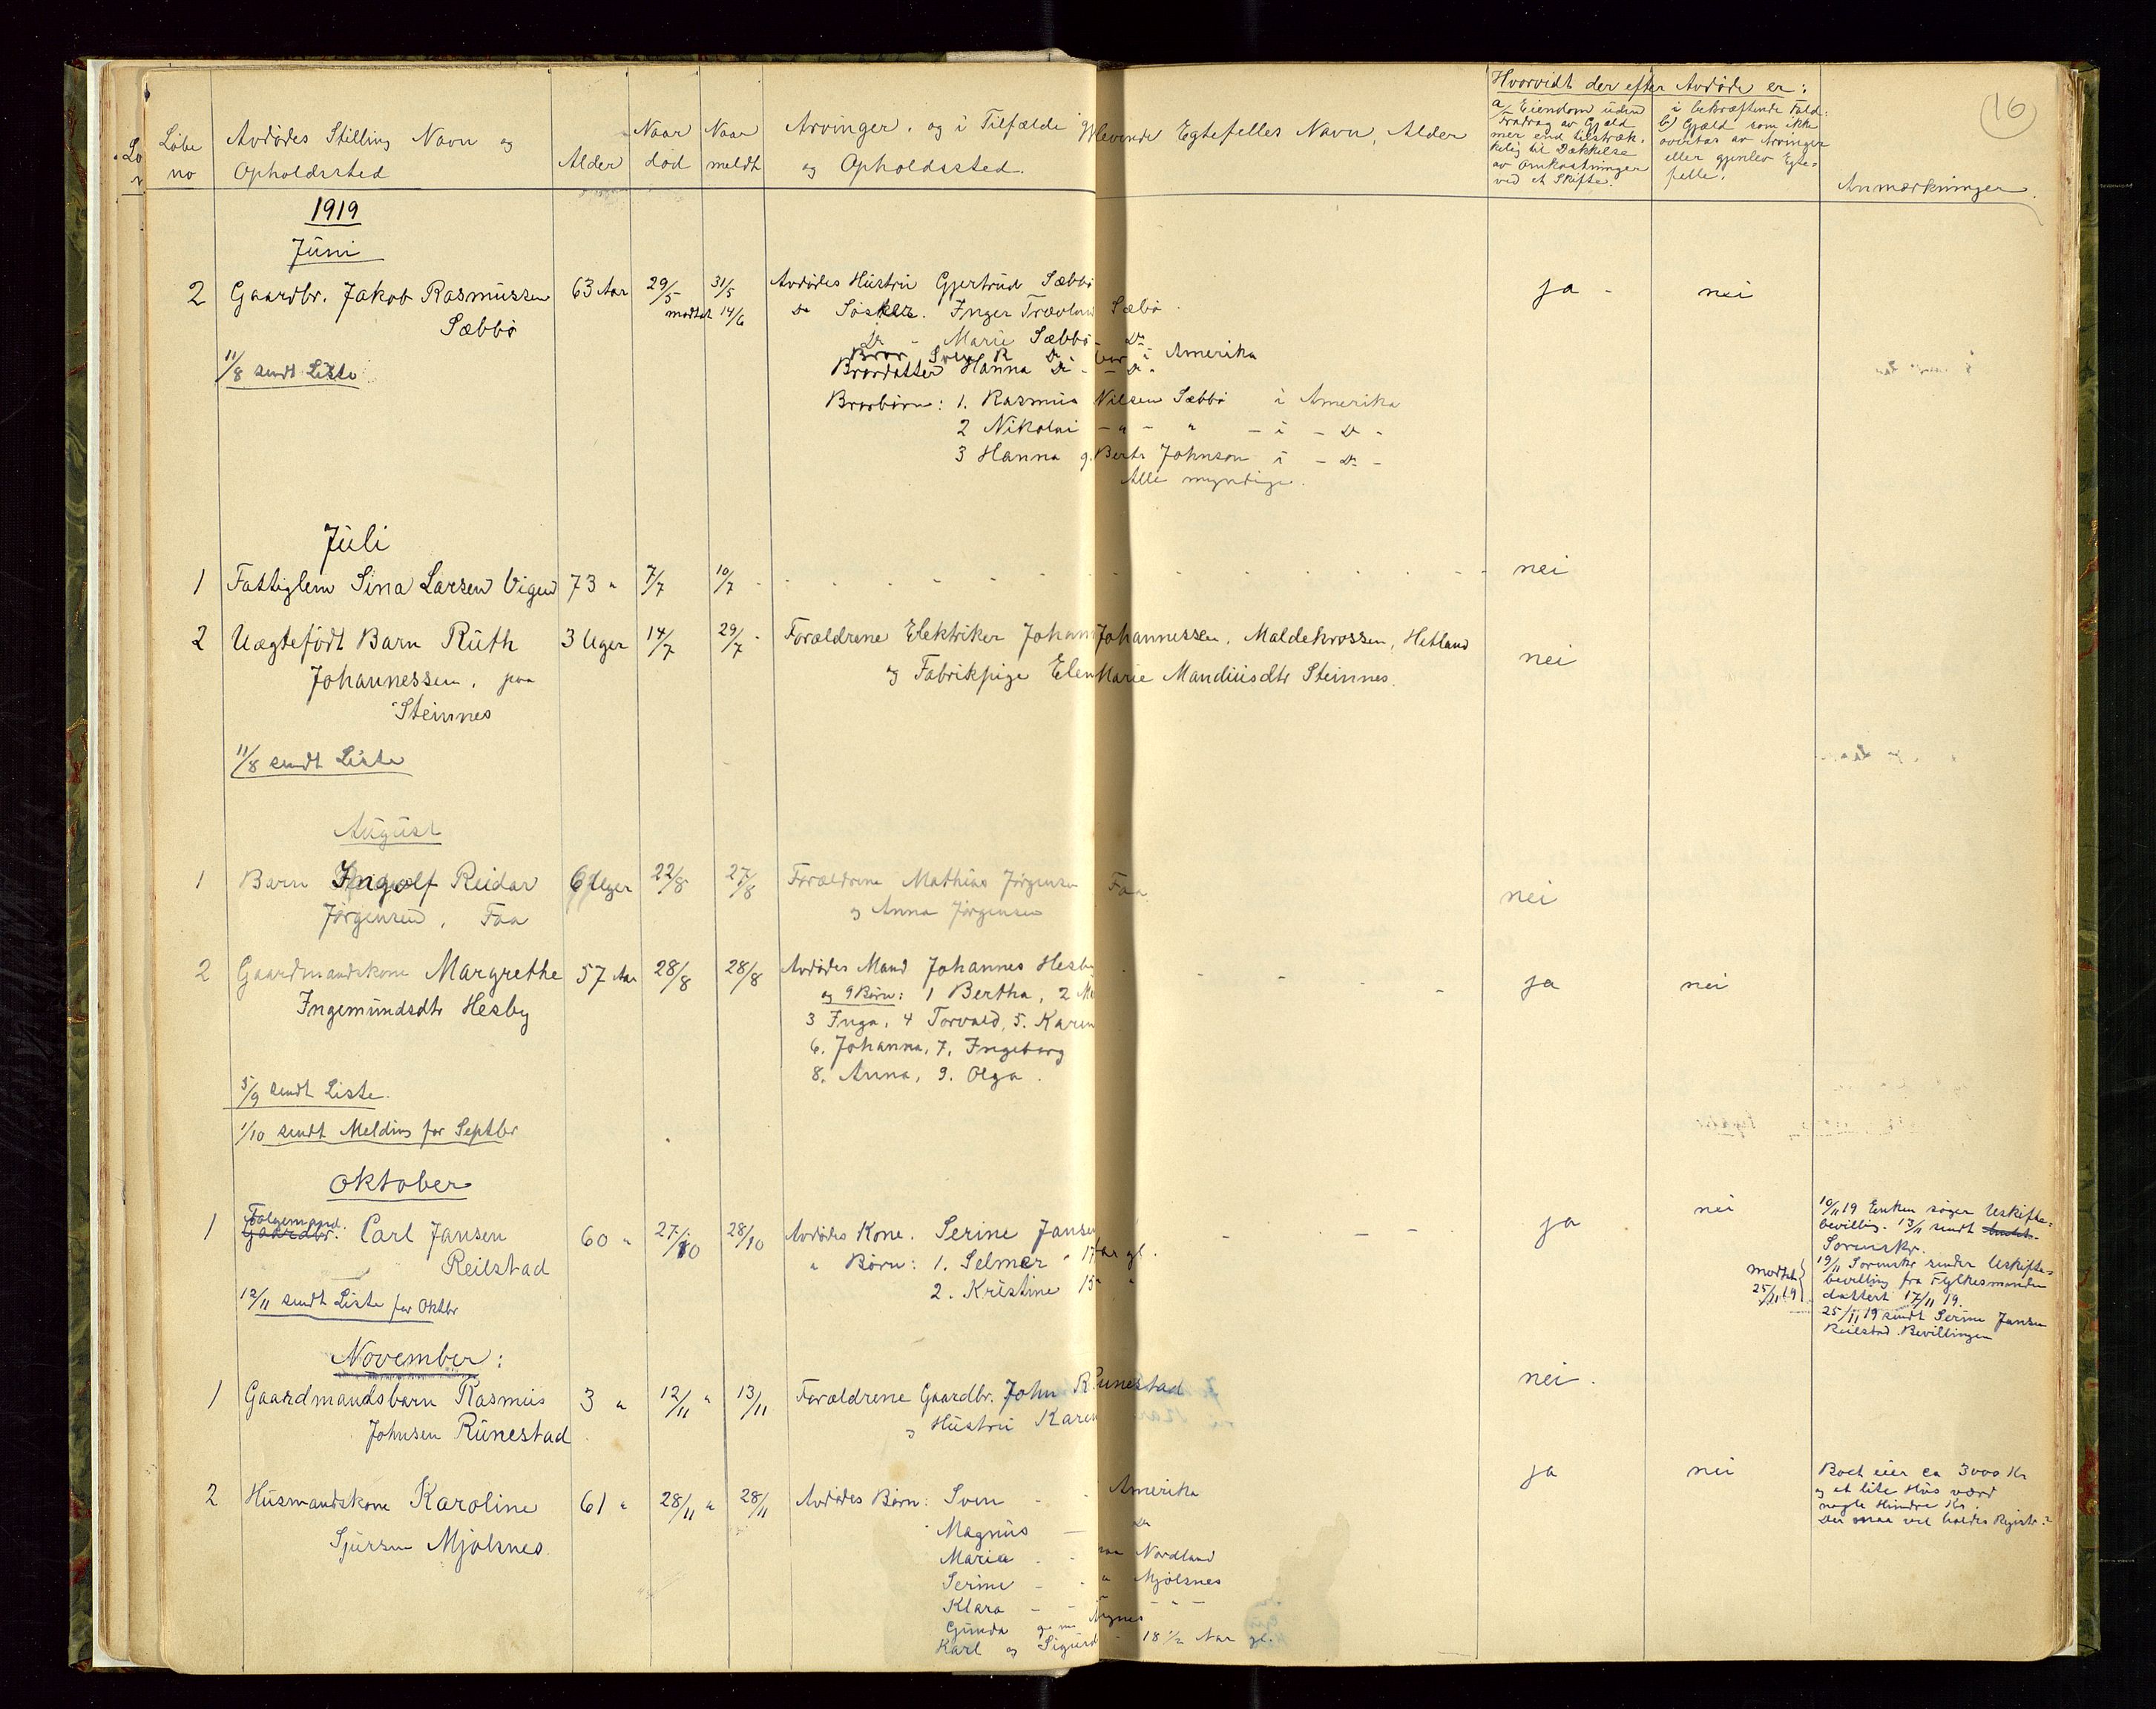 16
Løbe no | Avdødes Stilling Navn og Opholdssted | Alder | Naar død | Naar meldt | Arvinger, og i Tilfælde Gjenlevende Egtefelles Navn, Alder og Opholdssted.
Hvorvidt der efter Avdøde er:
a/ Eiendom uden Fradrag av Gjæld mer end tilstræk-kelig til Dækkelse av Omkostninger ved et Skifte. | i bekræftende Fald: b) Gjæld som ikke overtas av Arvinger eller gjenlev Egte-felle. | Anmærkninger.
1919
Juni
2 Gaardbr. Jakob Rasmussen 63 Aar 29/5 31/5 Avdødes Hustru Gjertrud Sæbbø ja - nei
Sæbbø modtat 14/6 Do Søsken. Inger Trævland Sæbø
Do - Marie Sæbbø - Do
Bror Sven R Do bor i Amerika
11/8 sendt Liste Brordatter Hanna Do - - Do -
Brorbørn: 1. Rasmus Nilsen Sæbbø i Amerika
2 Nikolai - " - " - i - Do -
3 Hanna g. Bertr Johnson i - Do -
Alle myndige.
Juli
1 Fattiglem Sina Larsen Vigen 73 " 7/7 10/7 - nei
2 Uægtefødt Barn Ruth 3 Uger 14/7 29/7 - Forældrene Elektriker Johan Johannessen, Maldekrossen, Hetland
Johannessen, paa og Fabrikpige Elen Marie Mandiusdtr Steinnes. nei
Steinnes
11/8 sendt Liste
August
1 Barn Ingolf Reidar 6 Uger 22/8 27/8 Forældrene Mathias Jørgensen Faa nei
Jørgensen, Faa og Anna Jørgensen
2 Gaardmandskone Margrethe 57 Aar 28/8 28/8 Avdødes Mand Johannes Hesby ja nei
Ingemundsdtr Hesby og 9 Børn: 1 Bertha, 2 Ma
3 Inga, 4 Torvald, 5. Karen
6. Johanna, 7. Ingeborg
8. Anna, 9. Olga.
5/9 sendt Liste.
1/10 sendt Melding for Septbr
Oktober
1 Følgemand. Gaardbr. Carl Jansen 60 " 27/10 28/10 Avdødes Kone. Serine Jansen ja nei
Reilstad " Børn: 1. Selmer " 17 Aar gl.
2. Kristine 15 " "
10/11 19 Enken søger Uskifte-
bevilling. 13/11 sendt
Sorenskr.
19/11 Sorenskr sender Uskifte-
bevilling fra Fylkesmanden
dattert 17/11 19.
modtat 25/11 19
25/11 19 sendt Serine Jansen
Reilstad Bevillingen
12/11 sendt Liste for Oktbr
November:
1 Gaardmandsbarn Rasmus 3 " 12/11 " 13/11 Forældrene Gaardbr. John Runestad nei.
Johnsen Runestad og Hustru Karen
2 Husmandskone Karoline 61 " 28/11 " 28/11 Avdødes Børn: Sven - - Amerika ja nei
Sjursen Mjølsnes Magnus - Do
Maria - - paa Nordland
Serine - - " Mjølsnes
Klara - - " - " -
Gunda
Karl og Sigurd - 18 1/2 Aar gl.
Boet eier ca 3000 Kr
og et lite Hus værd
nogle Hundre Kr.
Der maa vel holdes Registr?